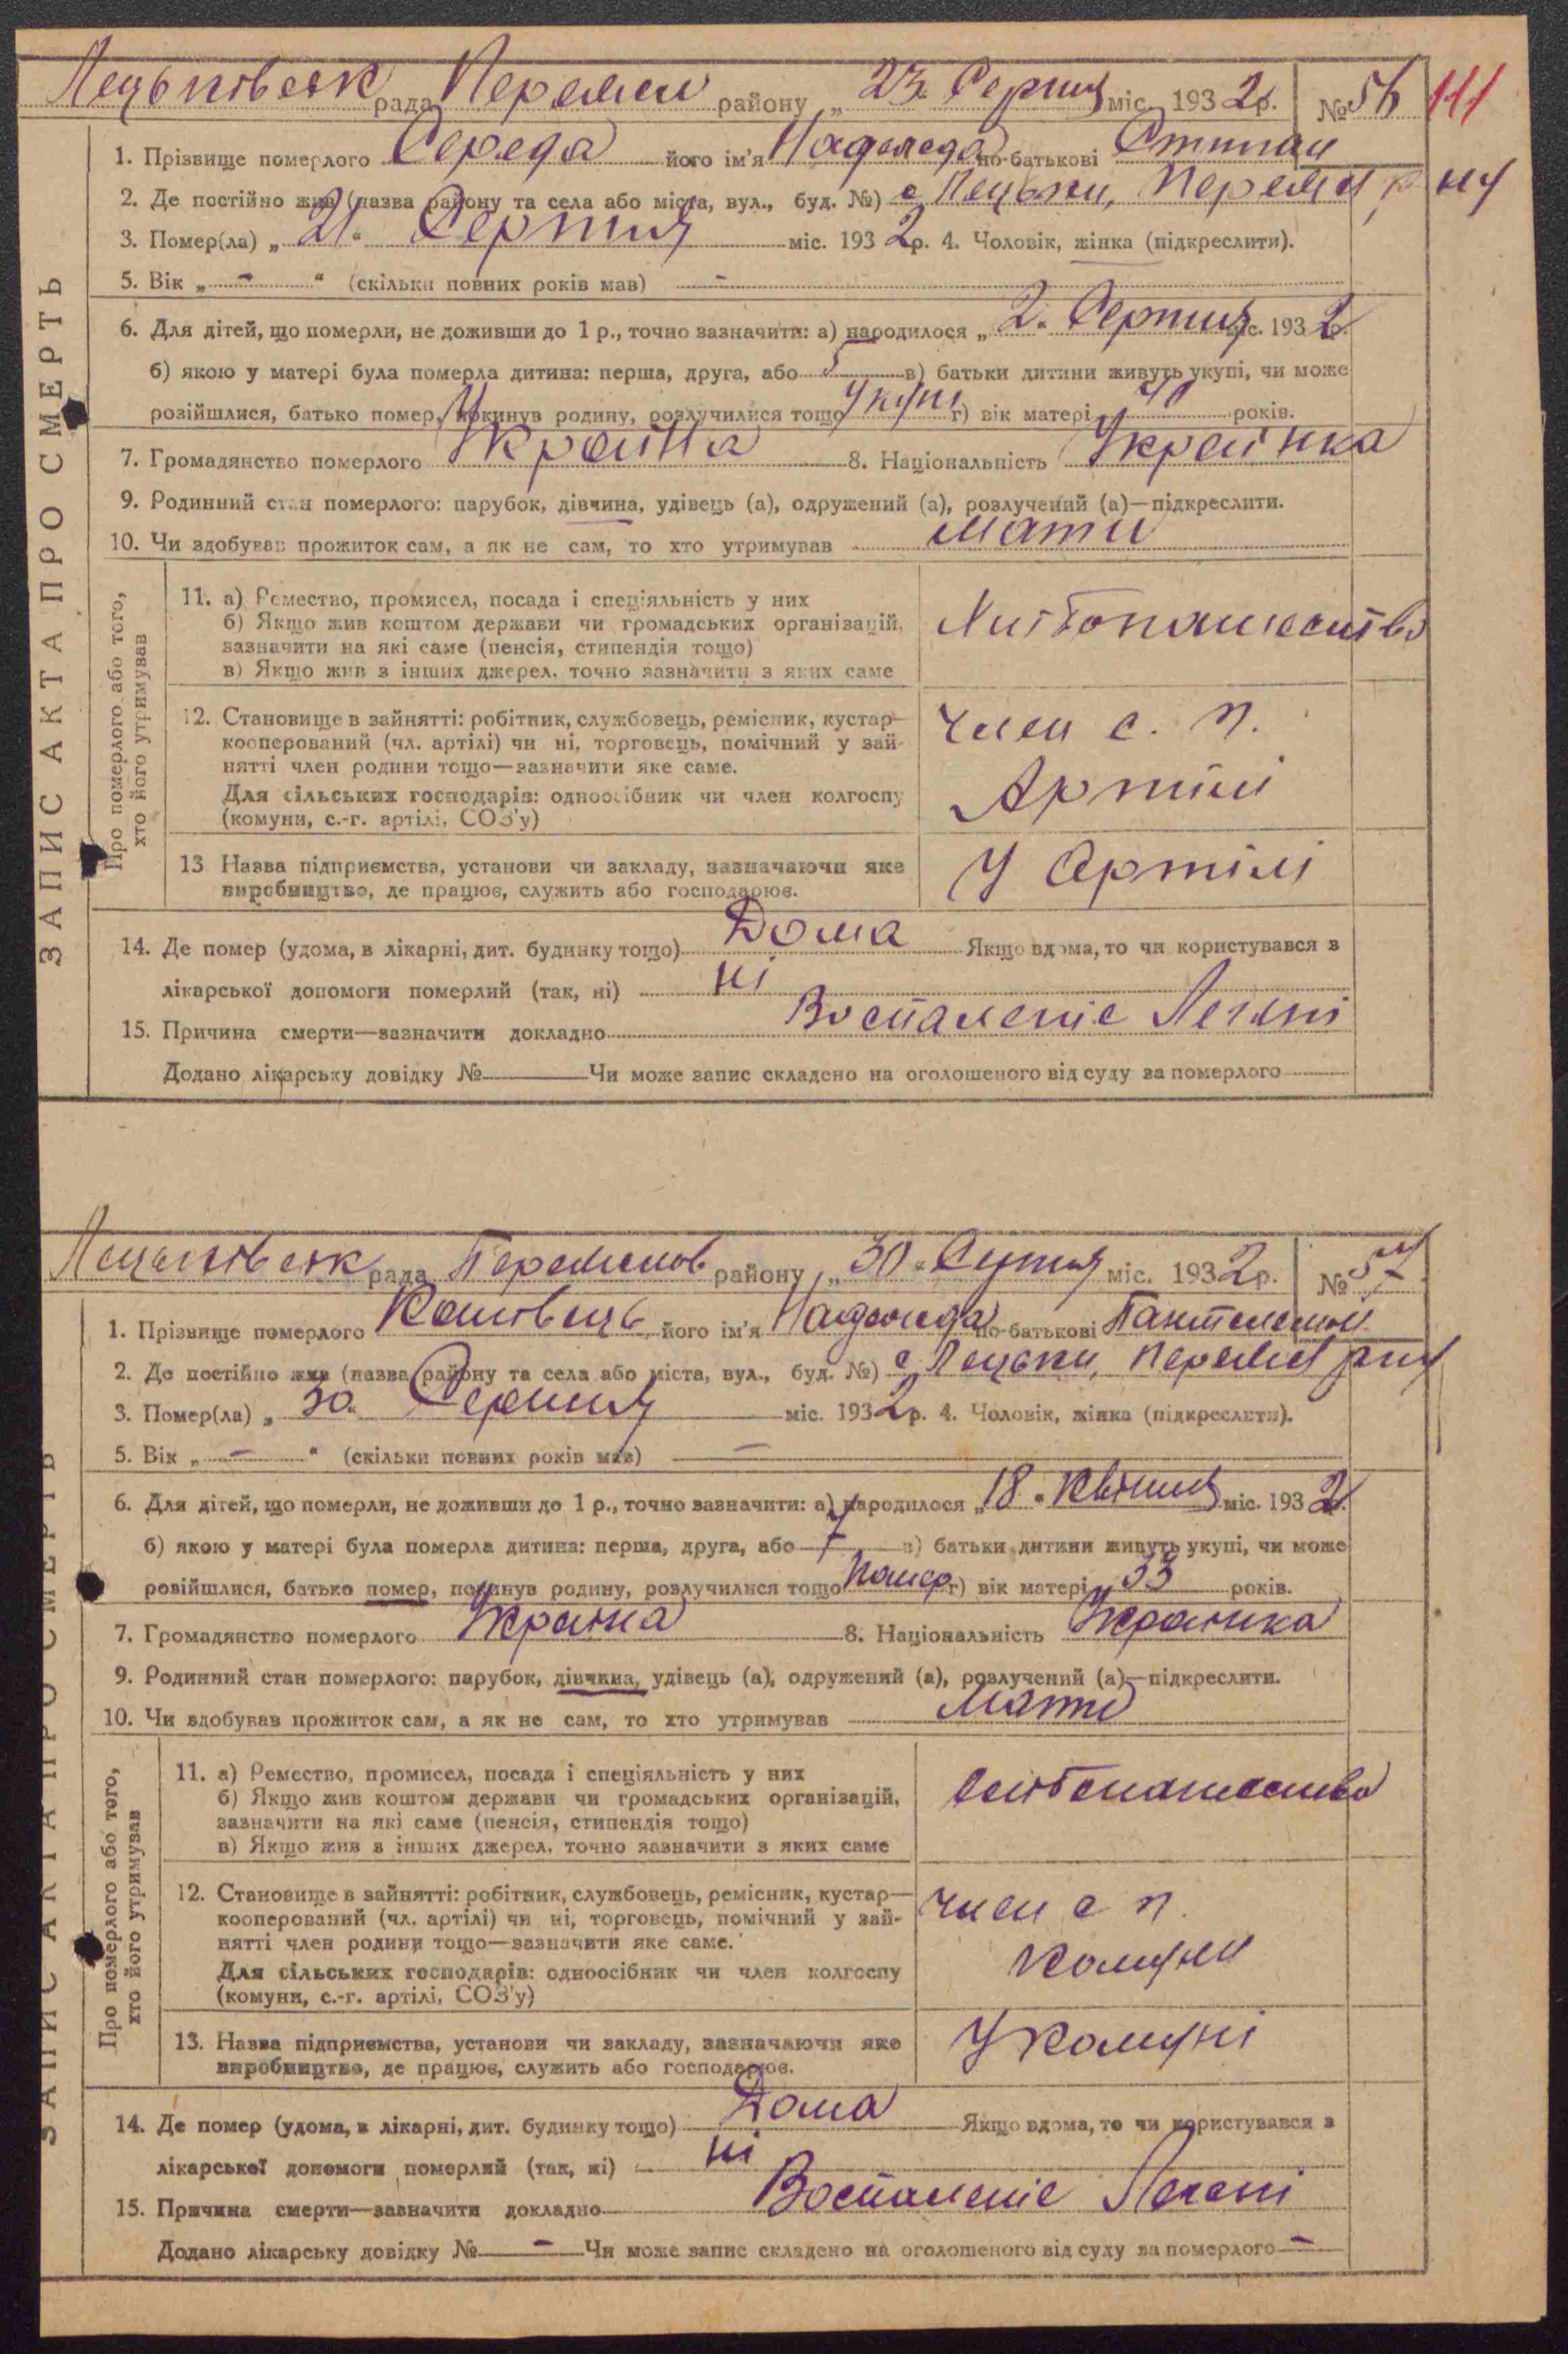 Лецьківськ рада Перемил району „ 23. Серпня міс. 1932 р. № 56 111
1. Прізвище померлого Середа його ім'я Надежда по-батькові Степан
2. Де постійно жив (назва району та села або міста, вул., буд. №) с Лецьки, Перемил р ну
3. Помер(ла) „ 21 “ Серпня міс. 1932 р. 4. Чоловік, жінка (підкреслити).
5. Вік „ – “ (скільки повних років мав) –
6. Для дітей, що померли, не доживши до 1 р., точно зазначити: а) народилося „ 2. Серпня міс. 1932 р.
б) якою у матері була померла дитина: перша, друга, або 5 в) батьки дитини живуть укупі, чи може
розійшлися, батько помер, покинув родину, розлучилися тощо Укупі г) вік матері 40 років.
7. Громадянство померлого Україна 8. Національність Українка
9. Родинний стан померлого: парубок, дівчина, удівець (а), одружений (а), розлучений (а)—підкреслити.
10. Чи здобував прожиток сам, а як не сам, то хто утримував Мати
ЗАПИС АКТА ПРО СМЕРТЬ
Про померлого або того,
хто його утримував
11. а) Ремество, промисел, посада і спеціяльність у них
б) Якщо жив коштом держави чи громадських організацій,
зазначити на які саме (пенсія, стипендія тощо)
в) Якщо жив з інших джерел, точно зазначити з яких саме
Хлібопашество
12. Становище в зайнятті: робітник, службовець, ремісник, кустар—
кооперований (чл. артілі) чи ні, торговець, помічний у зай-
нятті член родини тощо—зазначити яке саме.
Для сільських господарів: одноосібник чи член колгоспу
(комуни, с.-г. артілі, СОЗ'у)
член с. г.
Артілі
13 Назва підприємства, установи чи закладу, зазначаючи яке
виробництво, де працює, служить або господарює.
У Артілі
14. Де помер (удома, в лікарні, дит. будинку тощо) Дома Якщо вдома, то чи користувався з
лікарської допомоги померлий (так, ні) ні
15. Причина смерти—зазначити докладно Воспаленіє Легені
Додано лікарську довідку № Чи може запис складено на оголошеного від суду за померлого
Лецьківськ рада Перемилов району „ 30 “ Серпня міс. 1932 р. № 57
1. Прізвище померлого його ім'я Надежда по-батькові Пантелемон
2. Де постійно жив (назва району та села або міста, вул., буд. №) с Лецьки, Перемил рну
3. Помер(ла) „ 30 “ Серпня міс. 1932 р. 4. Чоловік, жінка (підкреслити).
5. Вік „ – “ (скільки повних років мав) –
6. Для дітей, що померли, не доживши до 1 р., точно зазначити: а) народилося „ 18 “ Квітня міс. 1932 р.
б) якою у матері була померла дитина: перша, друга, або 7 в) батьки дитини живуть укупі, чи може
розійшлися, батько помер, покинув родину, розлучилися тощо помер г) вік матері 33 років.
7. Громадянство померлого Україна 8. Національність Українка
9. Родинний стан померлого: парубок, дівчина, удівець (а), одружений (а), розлучений (а)—підкреслити.
10. Чи здобував прожиток сам, а як не сам, то хто утримував Мати
ЗАПИС АКТА ПРО СМЕРТЬ
Про померлого або того,
хто його утримував
11. а) Ремество, промисел, посада і спеціяльність у них
б) Якщо жив коштом держави чи громадських організацій,
зазначити на які саме (пенсія, стипендія тощо)
в) Якщо жив з інших джерел, точно зазначити з яких саме
хлібопашество
12. Становище в зайнятті: робітник, службовець, ремісник, кустар—
кооперований (чл. артілі) чи ні, торговець, помічний у зай-
нятті член родини тощо—зазначити яке саме.
Для сільських господарів: одноосібник чи член колгоспу
(комуни, с.-г. артілі, СОЗ'у)
член с г.
комуни
13. Назва підприємства, установи чи закладу, зазначаючи яке
виробництво, де працює, служить або господарює.
У комуні
14. Де помер (удома, в лікарні, дит. будинку тощо) Дома Якщо вдома, то чи користувався з
лікарської допомоги померлий (так, ні) ні
15. Причина смерти—зазначити докладно Воспаленіє Легені
Додано лікарську довідку № – Чи може запис складено на оголошеного від суду за померлого –